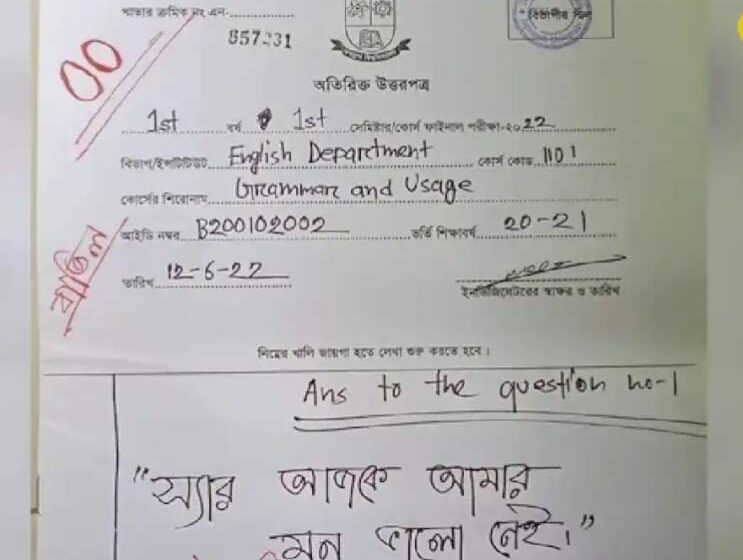 খাতার ক্রমিক নং এন-
857231
00
অতিরিক্ত উত্তরপত্র
1st বর্ষ 1st সেমিস্টার/কোর্স ফাইনাল পরীক্ষা-২০22
বিভাগ/ইনস্টিটিউট English Department কোর্স কোড 1101
কোর্সের শিরোনাম Grammar and Usage
আইডি নম্বর B200102002 ভর্তি শিক্ষাবর্ষ 20-21
তারিখ 12-6-22
ইনভিজিলেটরের স্বাক্ষর ও তারিখ
বাতিল
নিম্নের খালি জায়গা হতে লেখা শুরু করতে হবে।
Ans to the question no-1
"স্যার আজকে আমার
মন ভালো নেই।"